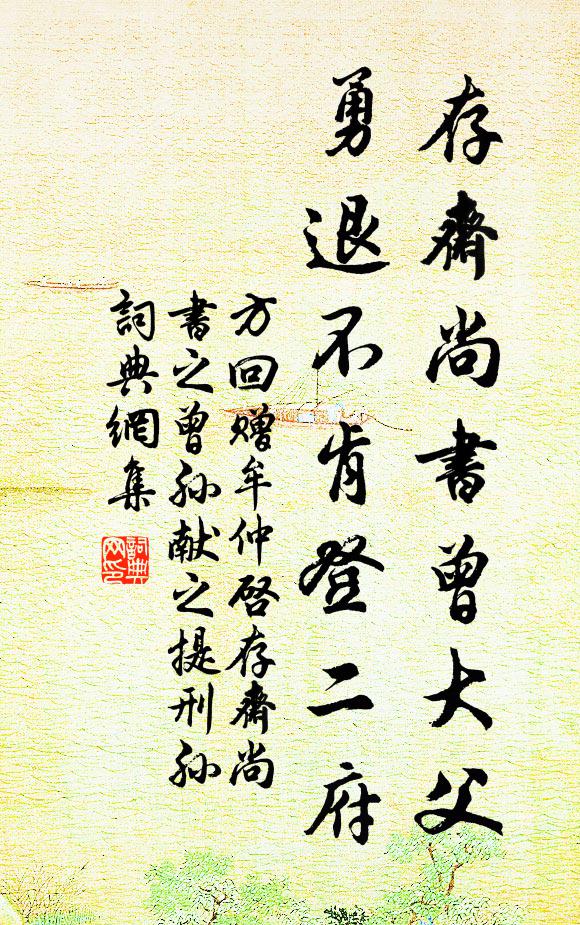 存齋尚書曾大父
勇退不肯登二府
方回赠牟仲啓存齋尚
書之曾孙献之提刑孙
詞典網集
詞典
网印